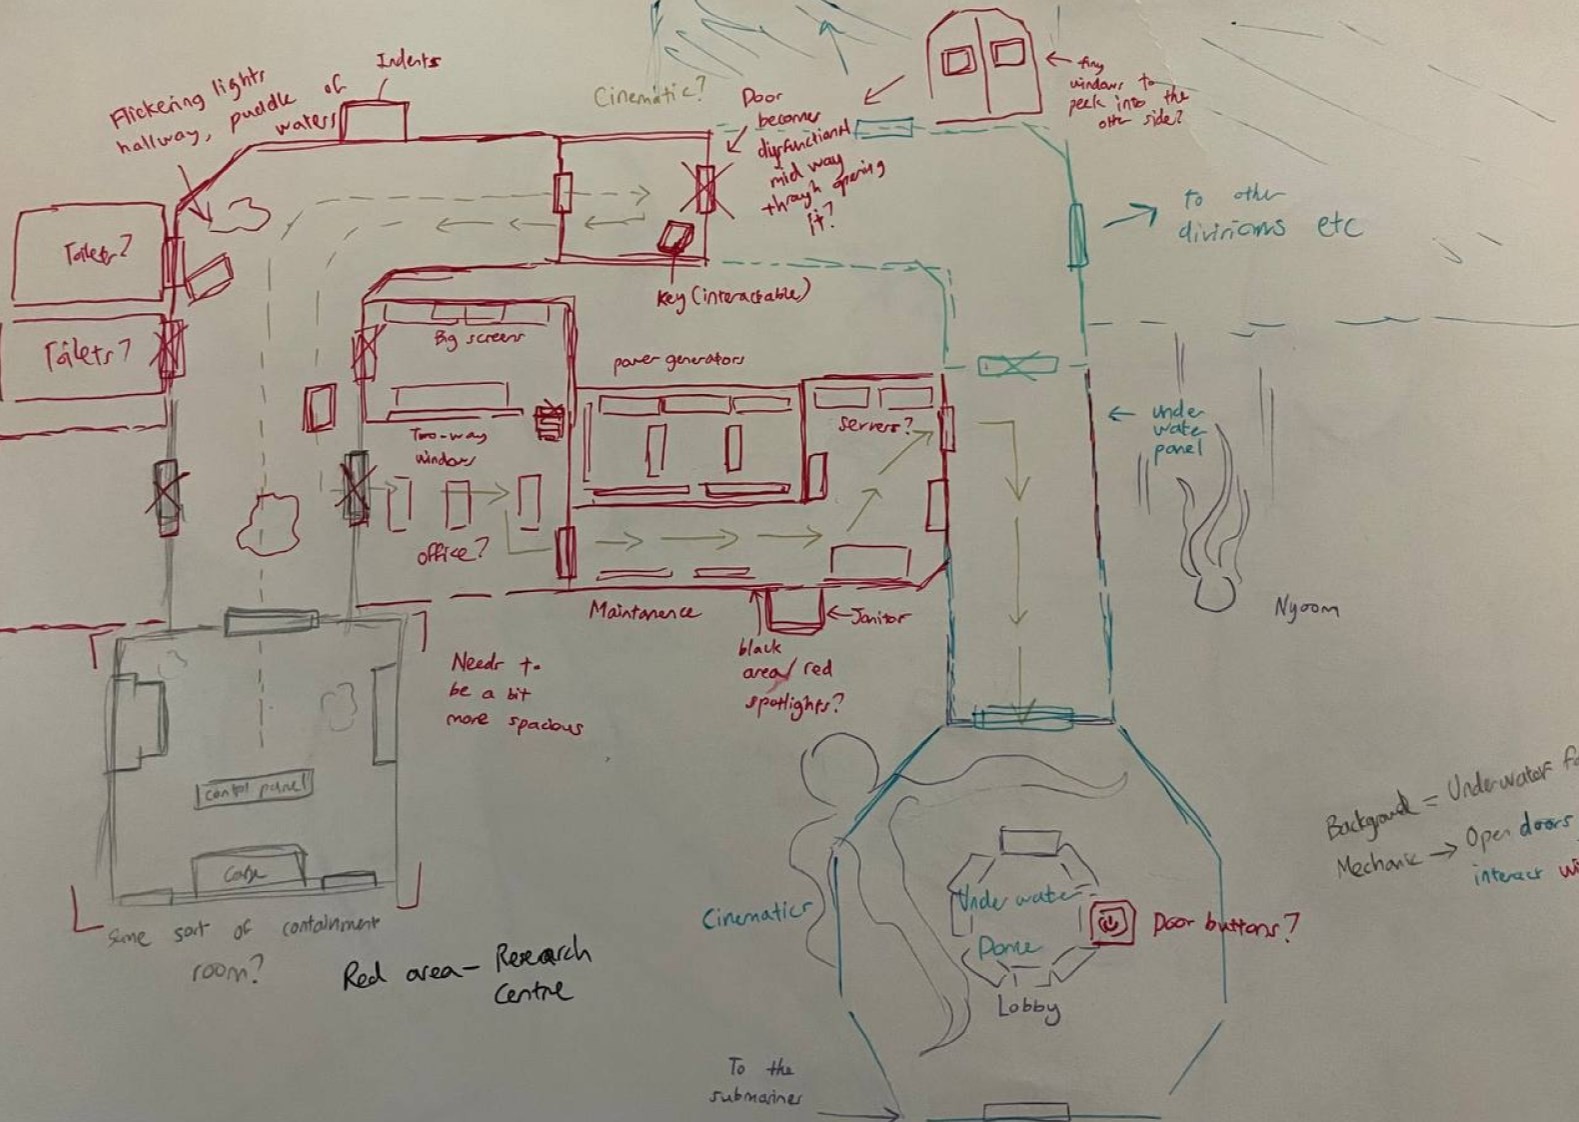 Flickering lights
hallway, puddle of
waters
Indents
Cinematic?
Door
becomes
dysfunctional
mid way
through opening
it?
tiny
windows to
peek into the
other side?
to other
divisions etc
Toilets?
Toilets?
Key (interactable)
Big screens
power generators
Servers?
Two-way
windows
office?
under
water
panel
Nyoom
Maintanence
Janitor
black
area/ red
spotlights?
Needs to
be a bit
more spacious
Contol panel
Case
Some sort of containment
room?
Red area - Research
Centre
Cinematics
Under water
Dome
Lobby
Door buttons?
To the
submarines
Background = Underwater
Mechanic → Open doors
interact